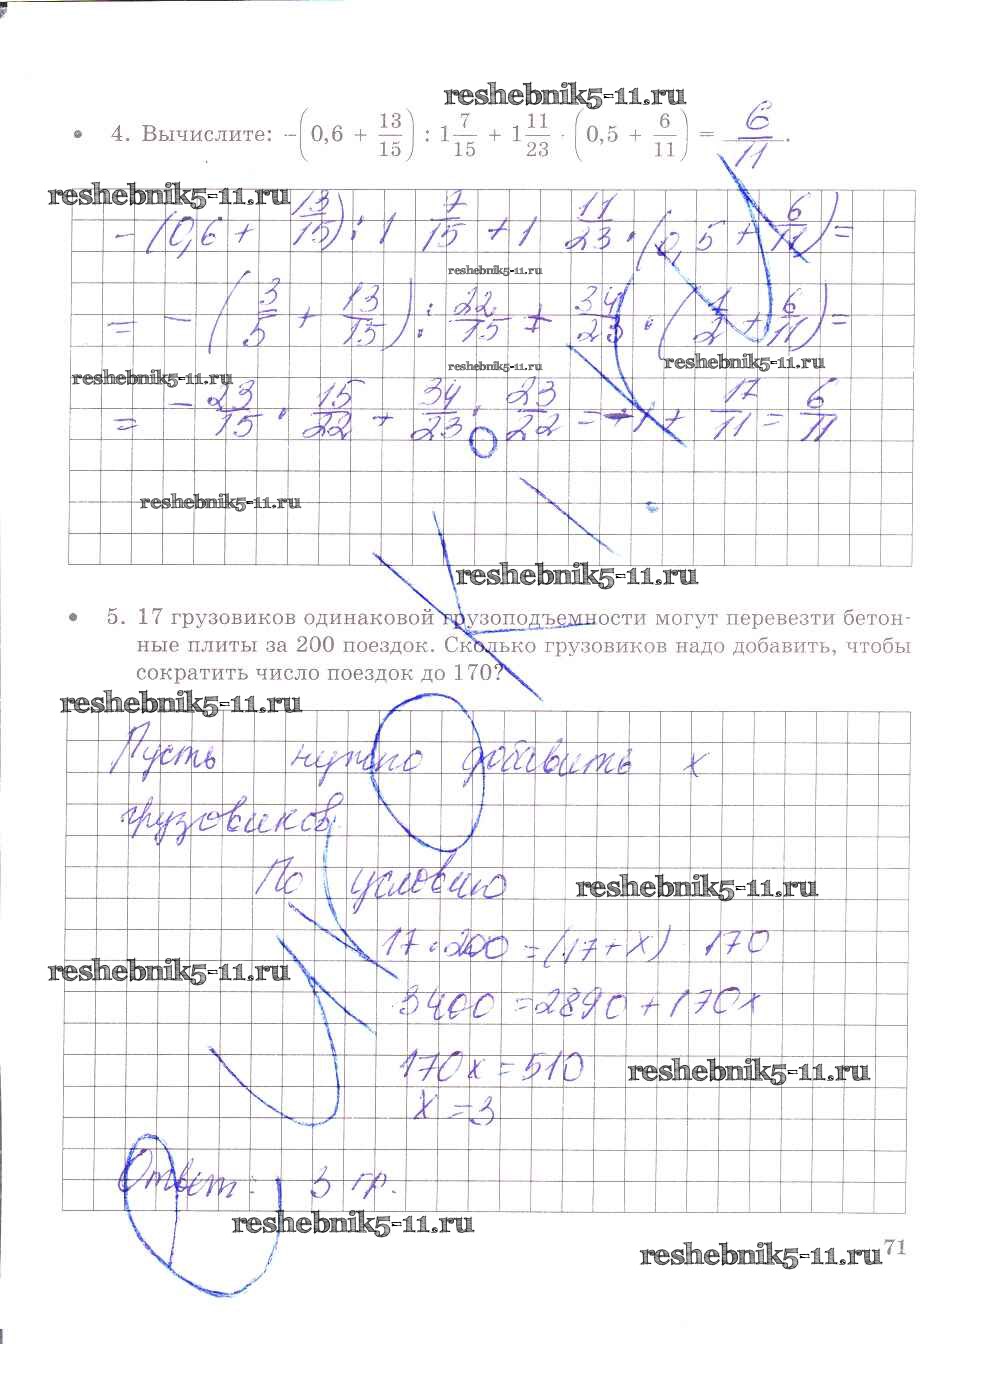 reshebnik5-11.ru
• 4. Вычислите: –(0,6 + 13/15) : 1 7/15 + 1 11/23 · (0,5 + 6/11) = 6/11.
reshebnik5-11.ru
–(0,6 + 13/15) : 1 7/15 + 1 11/23 · (0,5 + 6/11) =
reshebnik5-11.ru
= –(3/5 + 13/15) : 22/15 + 34/23 · (1/2 + 6/11) =
reshebnik5-11.ru reshebnik5-11.ru reshebnik5-11.ru
= –23/15 · 15/22 + 34/23 · 23/22 = –1 + 17/11 = 6/11
reshebnik5-11.ru
reshebnik5-11.ru
• 5. 17 грузовиков одинаковой грузоподъемности могут перевезти бетон-
ные плиты за 200 поездок. Сколько грузовиков надо добавить, чтобы
сократить число поездок до 170?
reshebnik5-11.ru
Пусть нужно добавить x
грузовиков.
По условию
reshebnik5-11.ru
17 · 200 = (17 + x) 170
reshebnik5-11.ru
3400 = 2890 + 170x
170x = 510
reshebnik5-11.ru
x = 3
Ответ: 3 гр.
reshebnik5-11.ru
71
reshebnik5-11.ru